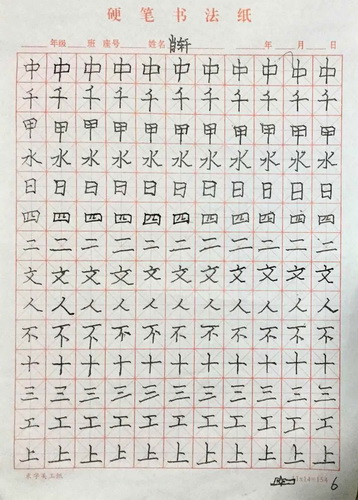 硬笔书法纸
年级 班 座号 姓名 肖轩 年 月 日
中中中中中中中中中中中
千千千千千千千千千千千
甲甲甲甲甲甲甲甲甲甲甲
水水水水水水水水水水水
日日日日日日日日日日日
四四四四四四四四四四四
二二二二二二二二二二二
文文文文文文文文文文文
人人人人人人人人人人人
不不不不不不不不不不不
十十十十十十十十十十十
三三三三三三三三三三三
工工工工工工工工工工工
上上上上上上上上上上上
6